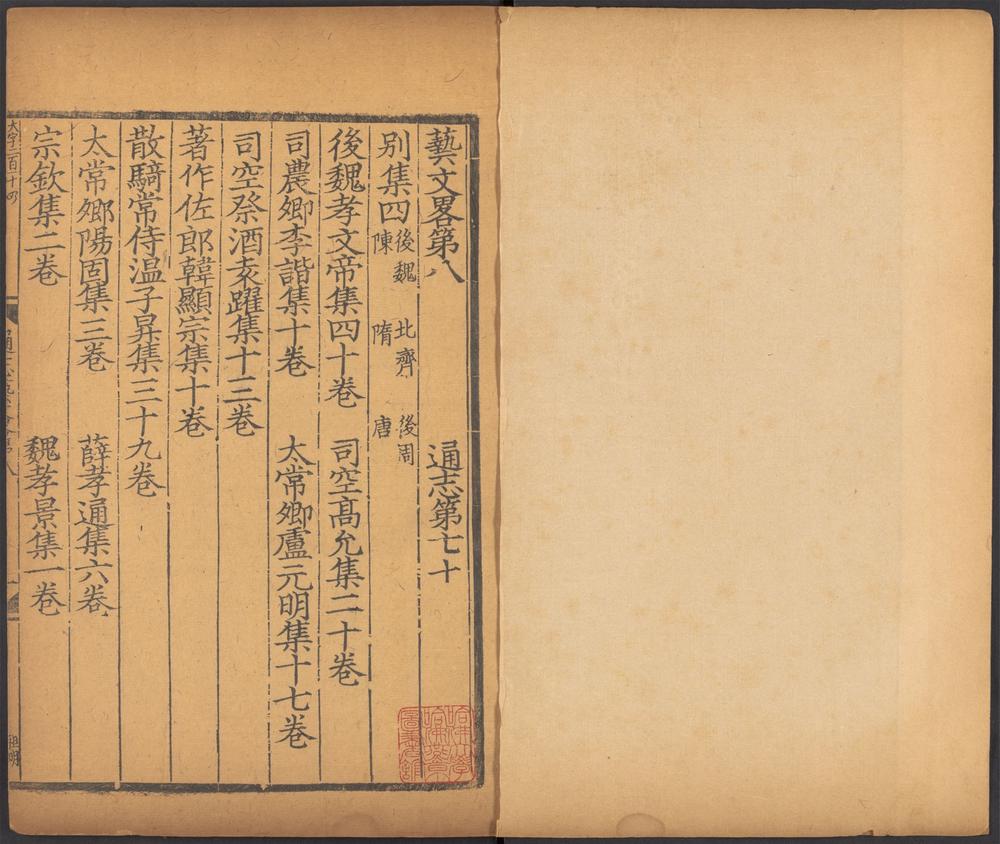 藝文畧第八　通志第七十
別集四　後魏　北齊　後周　陳　隋　唐
後魏孝文帝集四十卷　司空高允集二十卷
司農卿李諧集十卷　太常卿盧元明集十七卷
司空祭酒袁躍集十三卷
著作佐郎韓顯宗集十卷
散騎常侍温子昇集三十九卷
太常卿陽固集三卷　薛孝通集六卷
宗欽集二卷　魏孝景集一卷
大字二百十四